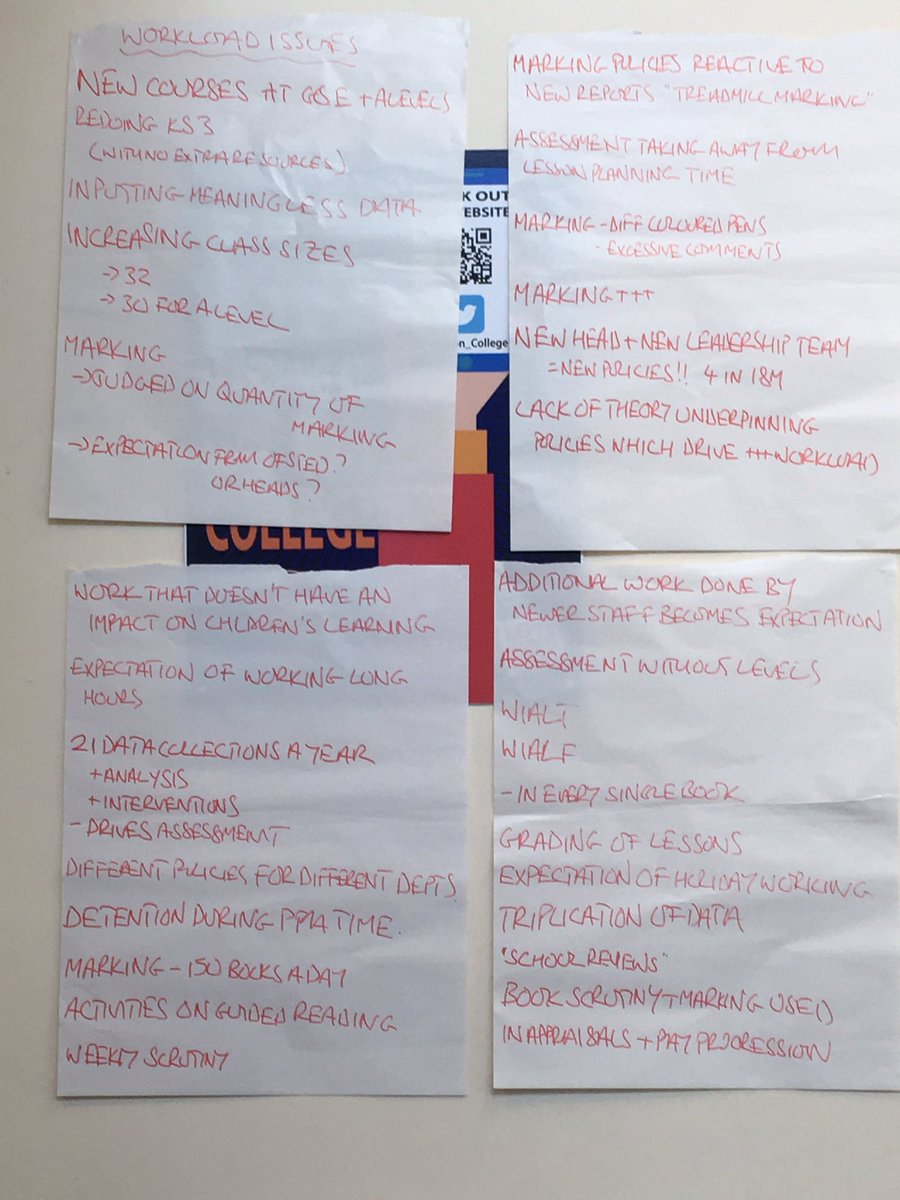 WORKLOAD ISSUES
NEW COURSES AT GCSE + ALEVELS
REDOING KS3
(WITH NO EXTRA RESOURCES)
INPUTTING MEANINGLESS DATA
INCREASING CLASS SIZES
→ 32
→ 30 FOR A LEVEL
MARKING
→ JUDGED ON QUANTITY OF
MARKING
→ EXPECTATION FROM OFSTED?
OR HEADS?
MARKING POLICIES REACTIVE TO
NEW REPORTS "TREADMILL MARKING"
ASSESSMENT TAKING AWAY FROM
LESSON PLANNING TIME
MARKING - DIFF COLOURED PENS
- EXCESSIVE COMMENTS
MARKING +++
NEW HEAD + NEW LEADERSHIP TEAM
= NEW POLICIES!! 4 IN 18M
LACK OF THEORY UNDERPINNING
POLICIES WHICH DRIVE +++ WORKLOAD
K OUT
EBSITE
n_College
COLLEGE
WORK THAT DOESN'T HAVE AN
IMPACT ON CHILDREN'S LEARNING
EXPECTATION OF WORKING LONG
HOURS
21 DATA COLLECTIONS A YEAR
+ ANALYSIS
+ INTERVENTIONS
- DRIVES ASSESSMENT
DIFFERENT POLICIES FOR DIFFERENT DEPTS.
DETENTION DURING PPA TIME.
MARKING - 150 BOOKS A DAY
ACTIVITIES ON GUIDED READING
WEEKLY SCRUTINY
ADDITIONAL WORK DONE BY
NEWER STAFF BECOMES EXPECTATION
ASSESSMENT WITHOUT LEVELS
WIALT
WIALF
- IN EVERY SINGLE BOOK
GRADING OF LESSONS
EXPECTATION OF HOLIDAY WORKING
TRIPLICATION OF DATA
"SCHOOL REVIEWS"
BOOK SCRUTINY + MARKING USED
IN APPRAISALS + PAY PROGRESSION